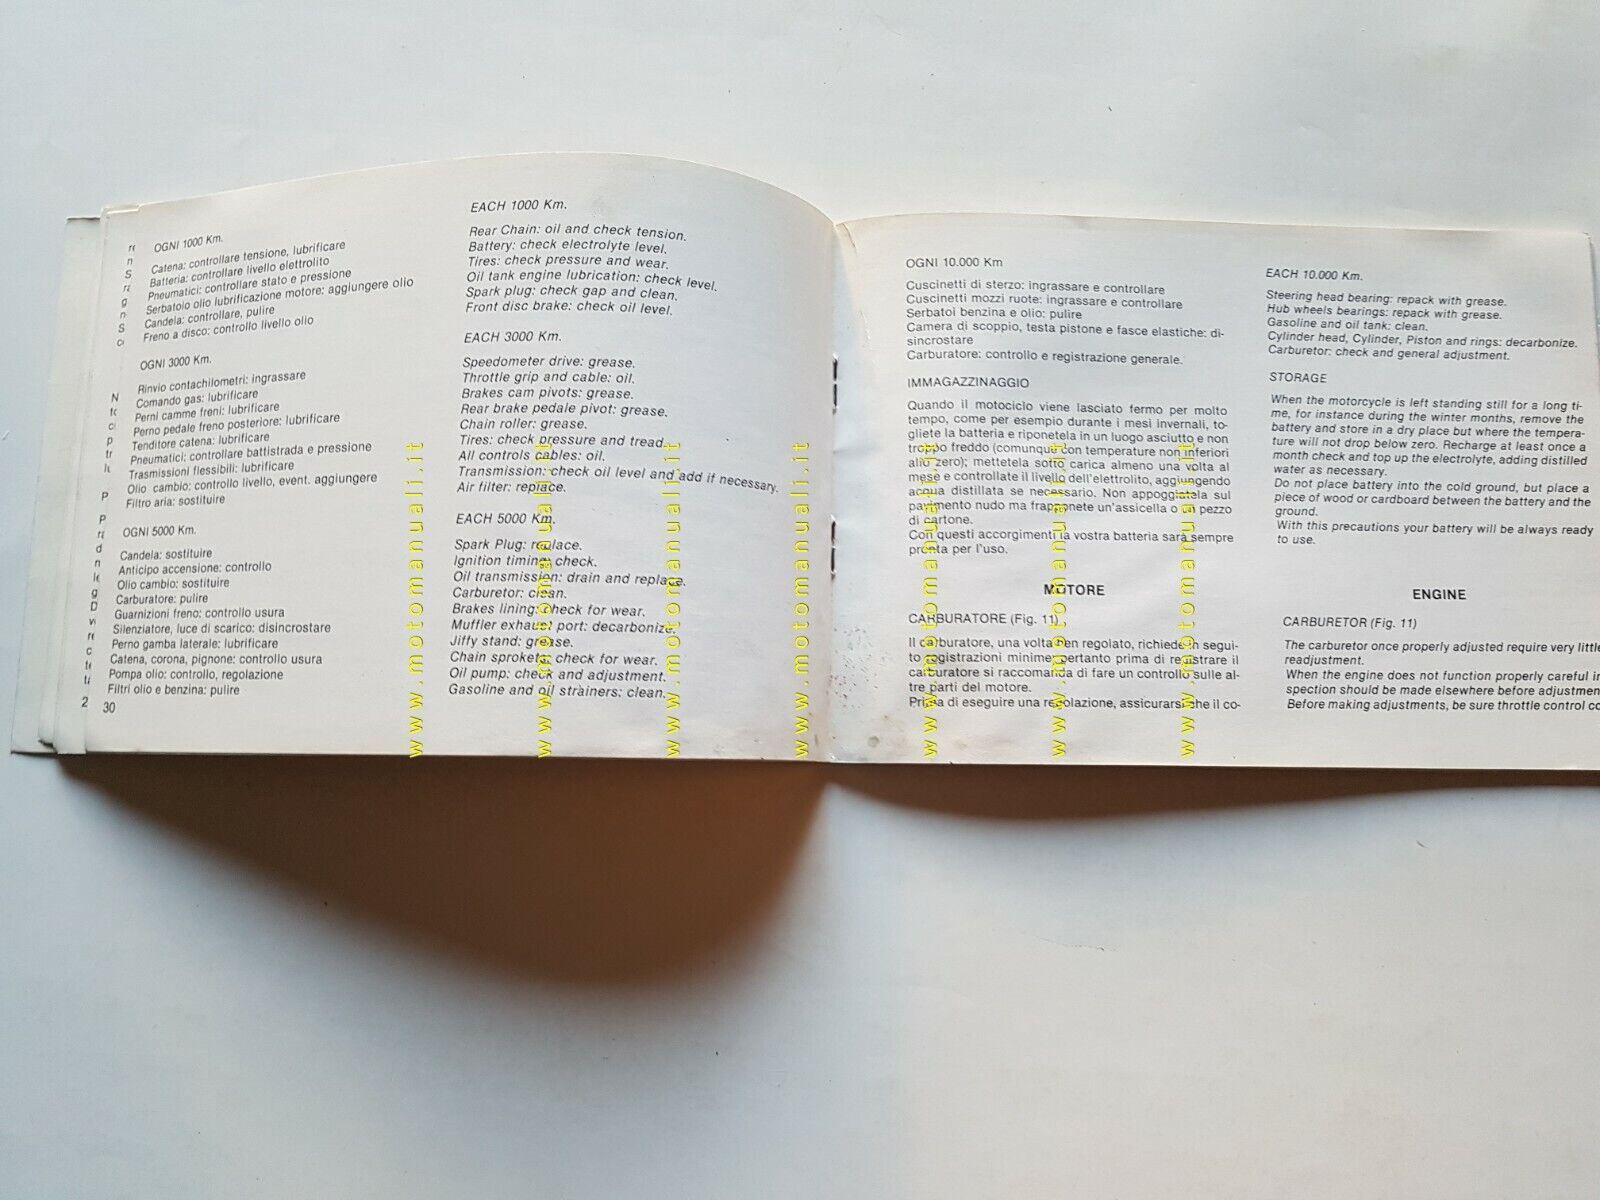 OGNI 1000 Km.
Catena: controllare tensione, lubrificare
Batteria: controllare livello elettrolito
Pneumatici: controllare stato e pressione
Serbatoio olio lubrificazione motore: aggiungere olio
Candela: controllare, pulire
Freno a disco: controllo livello olio
OGNI 3000 Km.
Rinvio contachilometri: ingrassare
Comando gas: lubrificare
Perni camme freni: lubrificare
Perno pedale freno posteriore: lubrificare
Tenditore catena: lubrificare
Pneumatici: controllare battistrada e pressione
Trasmissioni flessibili: lubrificare
Olio cambio: controllo livello, event. aggiungere
Filtro aria: sostituire
OGNI 5000 Km.
Candela: sostituire
Anticipo accensione: controllo
Olio cambio: sostituire
Carburatore: pulire
Guarnizioni freno: controllo usura
Silenziatore, luce di scarico: disincrostare
Perno gamba laterale: lubrificare
Catena, corona, pignone: controllo usura
Pompa olio: controllo, regolazione
Filtri olio e benzina: pulire
30
EACH 1000 Km.
Rear Chain: oil and check tension.
Battery: check electrolyte level.
Tires: check pressure and wear.
Oil tank engine lubrication: check level.
Spark plug: check gap and clean.
Front disc brake: check oil level.
EACH 3000 Km.
Speedometer drive: grease.
Throttle grip and cable: oil.
Brakes cam pivots: grease.
Rear brake pedale pivot: grease.
Chain roller: grease.
Tires: check pressure and tread.
All controls cables: oil.
Transmission: check oil level and add if necessary.
Air filter: replace.
EACH 5000 Km.
Spark Plug: replace.
Ignition timing: check.
Oil transmission: drain and replace.
Carburetor: clean.
Brakes lining: check for wear.
Muffler exhaust port: decarbonize.
Jiffy stand: grease.
Chain sprokets: check for wear.
Oil pump: check and adjustment.
Gasoline and oil strainers: clean.
OGNI 10.000 Km
Cuscinetti di sterzo: ingrassare e controllare
Cuscinetti mozzi ruote: ingrassare e controllare
Serbatoi benzina e olio: pulire
Camera di scoppio, testa pistone e fasce elastiche: di-
sincrostare
Carburatore: controllo e registrazione generale.
IMMAGAZZINAGGIO
Quando il motociclo viene lasciato fermo per molto
tempo, come per esempio durante i mesi invernali, to-
gliete la batteria e riponetela in un luogo asciutto e non
troppo freddo (comunque con temperature non inferiori
allo zero); mettetela sotto carica almeno una volta al
mese e controllate il livello dell'elettrolito, aggiungendo
acqua distillata se necessario. Non appoggiatela sul
pavimento nudo ma frapponete un'assicella o un pezzo
di cartone.
Con questi accorgimenti la vostra batteria sarà sempre
pronta per l'uso.
MOTORE
CARBURATORE (Fig. 11)
Il carburatore, una volta ben regolato, richiede in segui-
to registrazioni minime, pertanto prima di registrare il
carburatore si raccomanda di fare un controllo sulle al-
tre parti del motore.
Prima di eseguire una regolazione, assicurarsi che il co-
EACH 10.000 Km.
Steering head bearing: repack with grease.
Hub wheels bearings: repack with grease.
Gasoline and oil tank: clean.
Cylinder head, Cylinder, Piston and rings: decarbonize.
Carburetor: check and general adjustment.
STORAGE
When the motorcycle is left standing still for a long ti-
me, for instance during the winter months, remove the
battery and store in a dry place but where the tempera-
ture will not drop below zero. Recharge at least once a
month check and top up the electrolyte, adding distilled
water as necessary.
Do not place battery into the cold ground, but place a
piece of wood or cardboard between the battery and the
ground.
With this precautions your battery will be always ready
to use.
ENGINE
CARBURETOR (Fig. 11)
The carburetor once properly adjusted require very little
readjustment.
When the engine does not function properly careful in
spection should be made elsewhere before adjustmen
Before making adjustments, be sure throttle control co
www.motomanuali.it
www.motomanuali.it
www.motomanuali.it
www.motomanuali.it
www.motomanuali.it
www.motomanuali.it
www.motomanuali.it